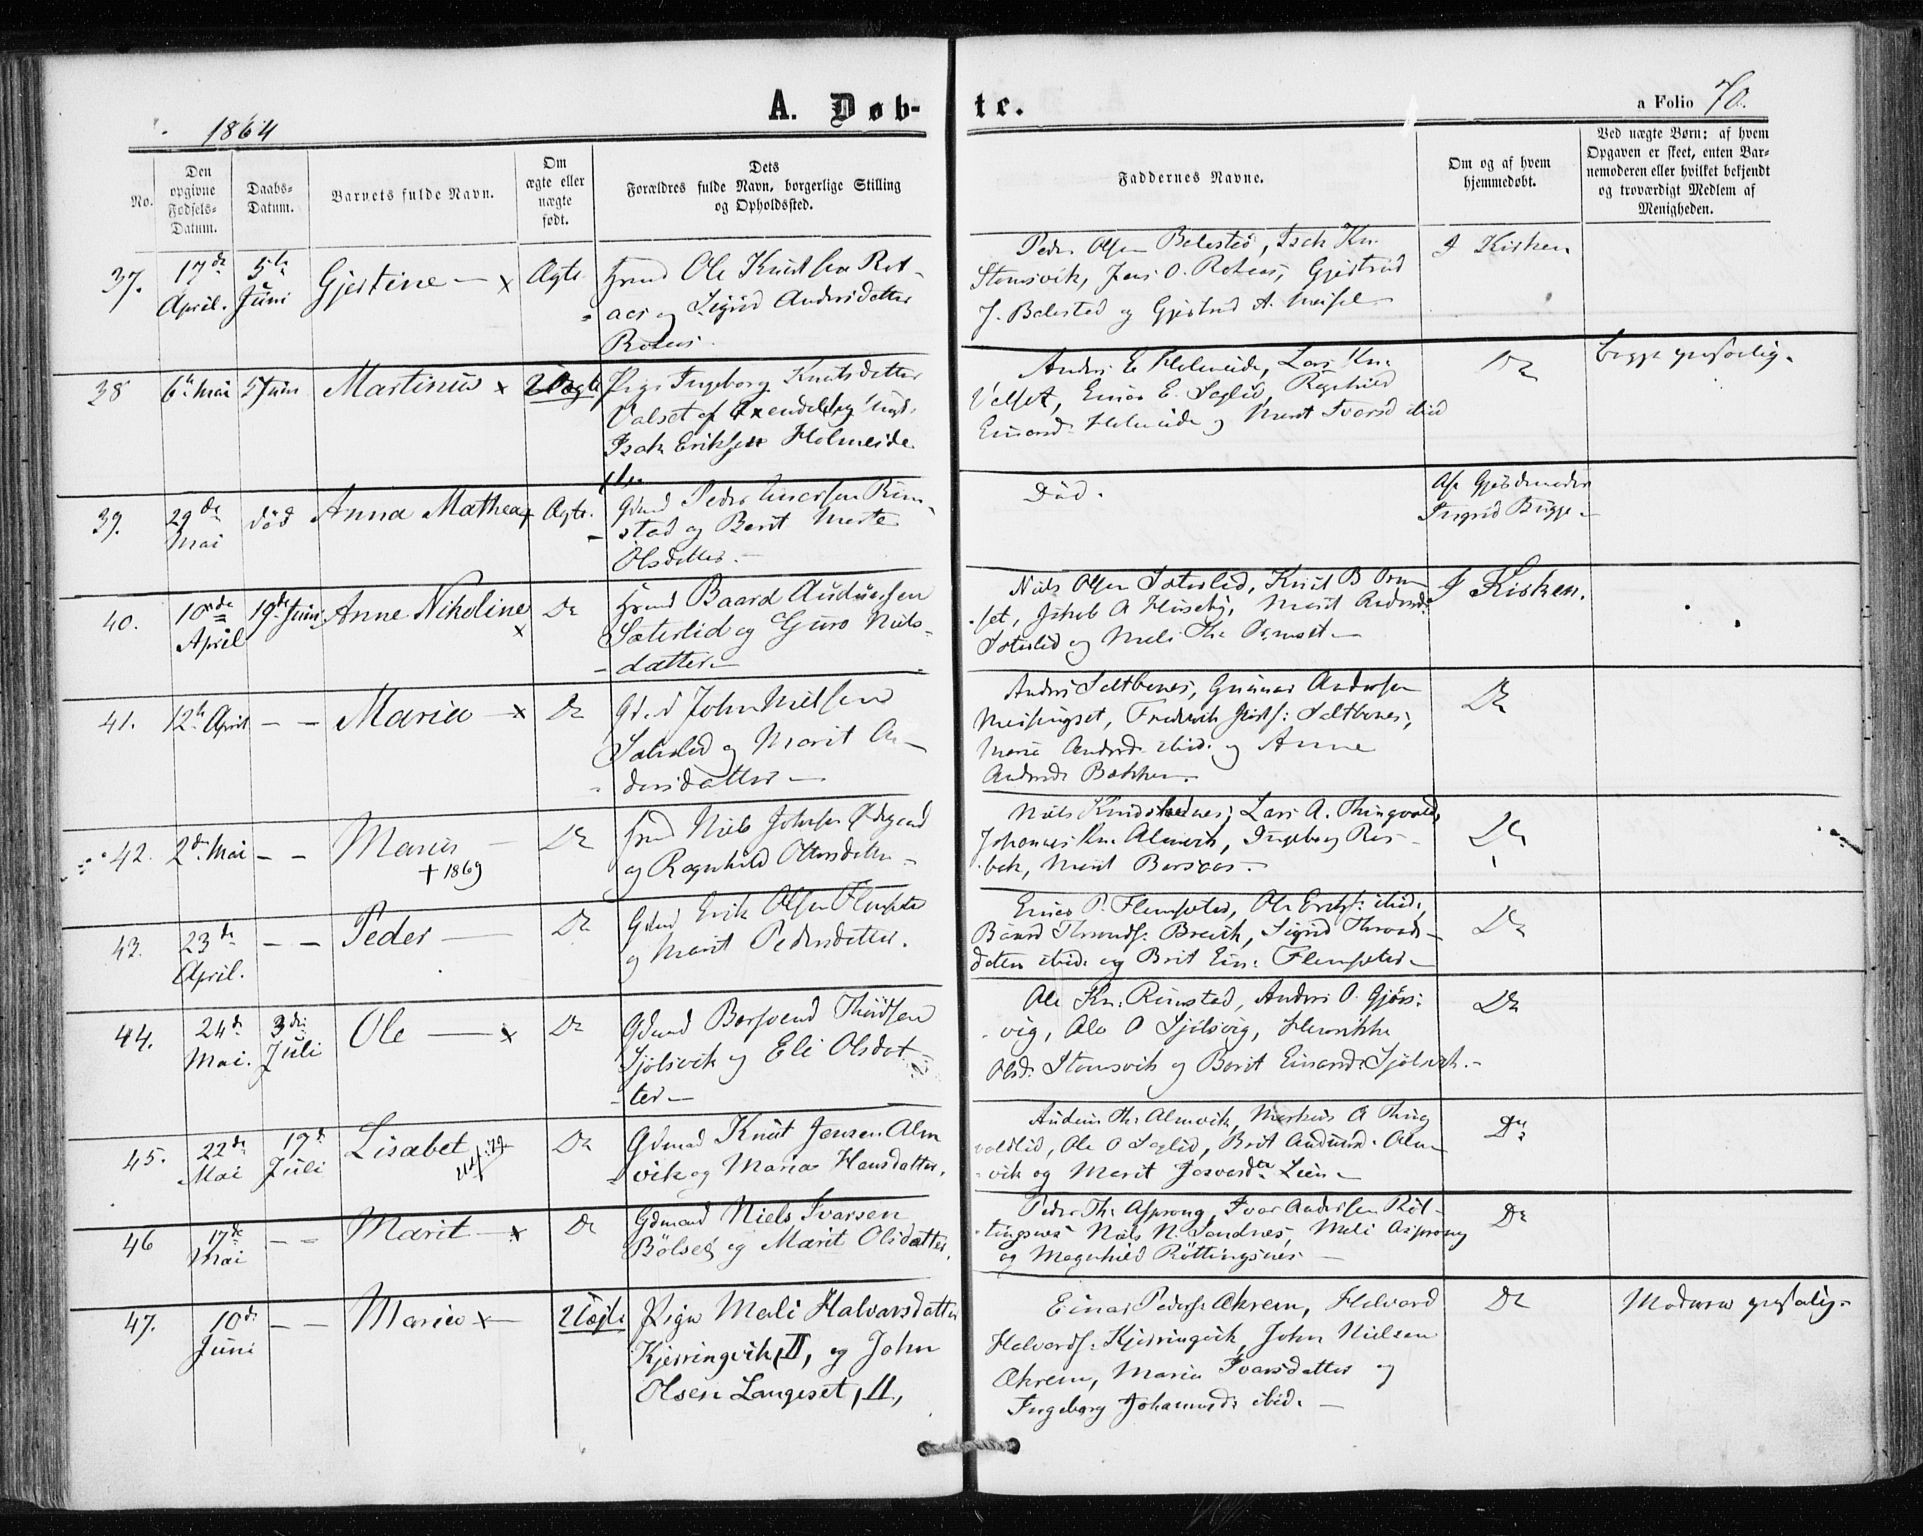 1864
A. Døb-
te.
a Folio 70.
No.
Den
opgivne
Fødsels-
Datum.
Daabs-
Datum.
Barnets fulde Navn.
Om
ægte eller
uægte
født.
Dets
Forældres fulde Navn, borgerlige Stilling
og Opholdssted.
Faddernes Navne.
Om og af hvem
hjemmedøbt.
Ved uægte Børn: af hvem
Opgaven er skeet, enten Bar-
nemoderen eller hvilket bekjendt
og troværdigt Medlem af
Menigheden.
37.
17de
April.
5te
Juni
Gjertine — x
Ægte
Ole Knudsen Rot-
aas og Sigrid Andersdatter
Rotaas.
Peder Olsen Bolestad, Isak Kn.
Stomsvik, Jens O. Rotaas, Gjertrud
J. Bolestad og Gjertrud A.
I Kirken
38
6te Mai
5 Juni
Martinus x
Uægte
Pige Ingeborg Knutsdatter
Valset af og Ungk.
Isak Eriksen Holmeide
Anders E Holmeide, Lars Kn.
Valset, Einar E. Soglid, Ragnhild
Einarsd. Holmeide og Marit Ivarsd ibid
Do
begge
39.
29de
Mai
død
Anna Mathea x
Ægte.
Gdmd Peder Einarsen Rim-
stad og Berit Marte
Olsdatter —
Død.
Af Gjordemoder
Ingrid Bugge —
40.
10de
April
19de Juni
Anne Nikoline
x
Do
Baard Audunsen
Sæterlid og Guro Niels-
datter —
Niels Olsen Sæterlid, Knut B Orm-
set, Jakob A Huseby, Marit Andersd.
Sæterlid og Meli Th. Ormset —
I Kirken.
41.
12te April
— —
Maria — x
Do
John Nielsen
Sæterlid og Marit An-
dersdatter —
Anders Saltbones, Gunnar Andersen
Meisingset, Frederik Saltbones,
Marie Andersd. ibid. og Anne
Andersd. Bakken.
Do
42.
2de Mai
— —
Marius —
+ 1869
Do
Niels Johnsen Ødegaard
og Ragnhild Ottersdatter —
Niels Knudshednes, Lars A. Thingvold,
Johannes Kn. Almvik, Ingeborg Ros-
bek, Marit Borsaas —
Do
43.
23de
April.
— —
Peder —
Do
Gdmd Erik Olsen Flemsetер
og Marit Pedersdatter.
Einar P. Flemsæter, Ole ibid,
Baard Thronds. Breivik, Sigrid Thronds-
datter ibid. og Brit Ein. Flemsæter —
Do
44.
24de
Mai.
3die
Juli
Ole — x
Do
Gdmd Borsvend Thordsen
Sjølsvik og Eli Olsdat-
ter —
Ole Kn. Rimstad, Anders O. Gjørs-
vig, Ole O Sjølsvig, Henrikke
Olsd. Stomsvik og Berit Einarsd. Sjølsvik. —
Do
45.
22de
Mai
17de
Juli
Lisabet
Do
Gdmd Knut Jensen Alm
vik og Maria Hansdatter.
Audun Th. Almvik, Markus A Thing
voldlid, Ole O Soglid, Brit Audunsd. Alm-
vik og Marit Lien —
Do
46
17de
Mai
— —
Marit — x
Do
Gdmand Niels Ivarsen
Bölset og Marit Olsdatter.
Peder Th. Asprong, Ivar Andersen Röt-
tingsnes Niels N. Sandnes, Meli Asprong
og Magnhild Röttingsnes —
Do
47.
10de
Juni
— —
Maria x —
Uægte
Pige Mali Halvarsdatter
Kjerringvik, II, og John
Olsen Langeset, II,
Einar Peders. Ækrem, Halvard
Halvards. Kjerringvik, John Nielsen
Ækrem, Maria Ivarsdatter og
Ingeborg Johannesd. ibid. —
Do
Moderen